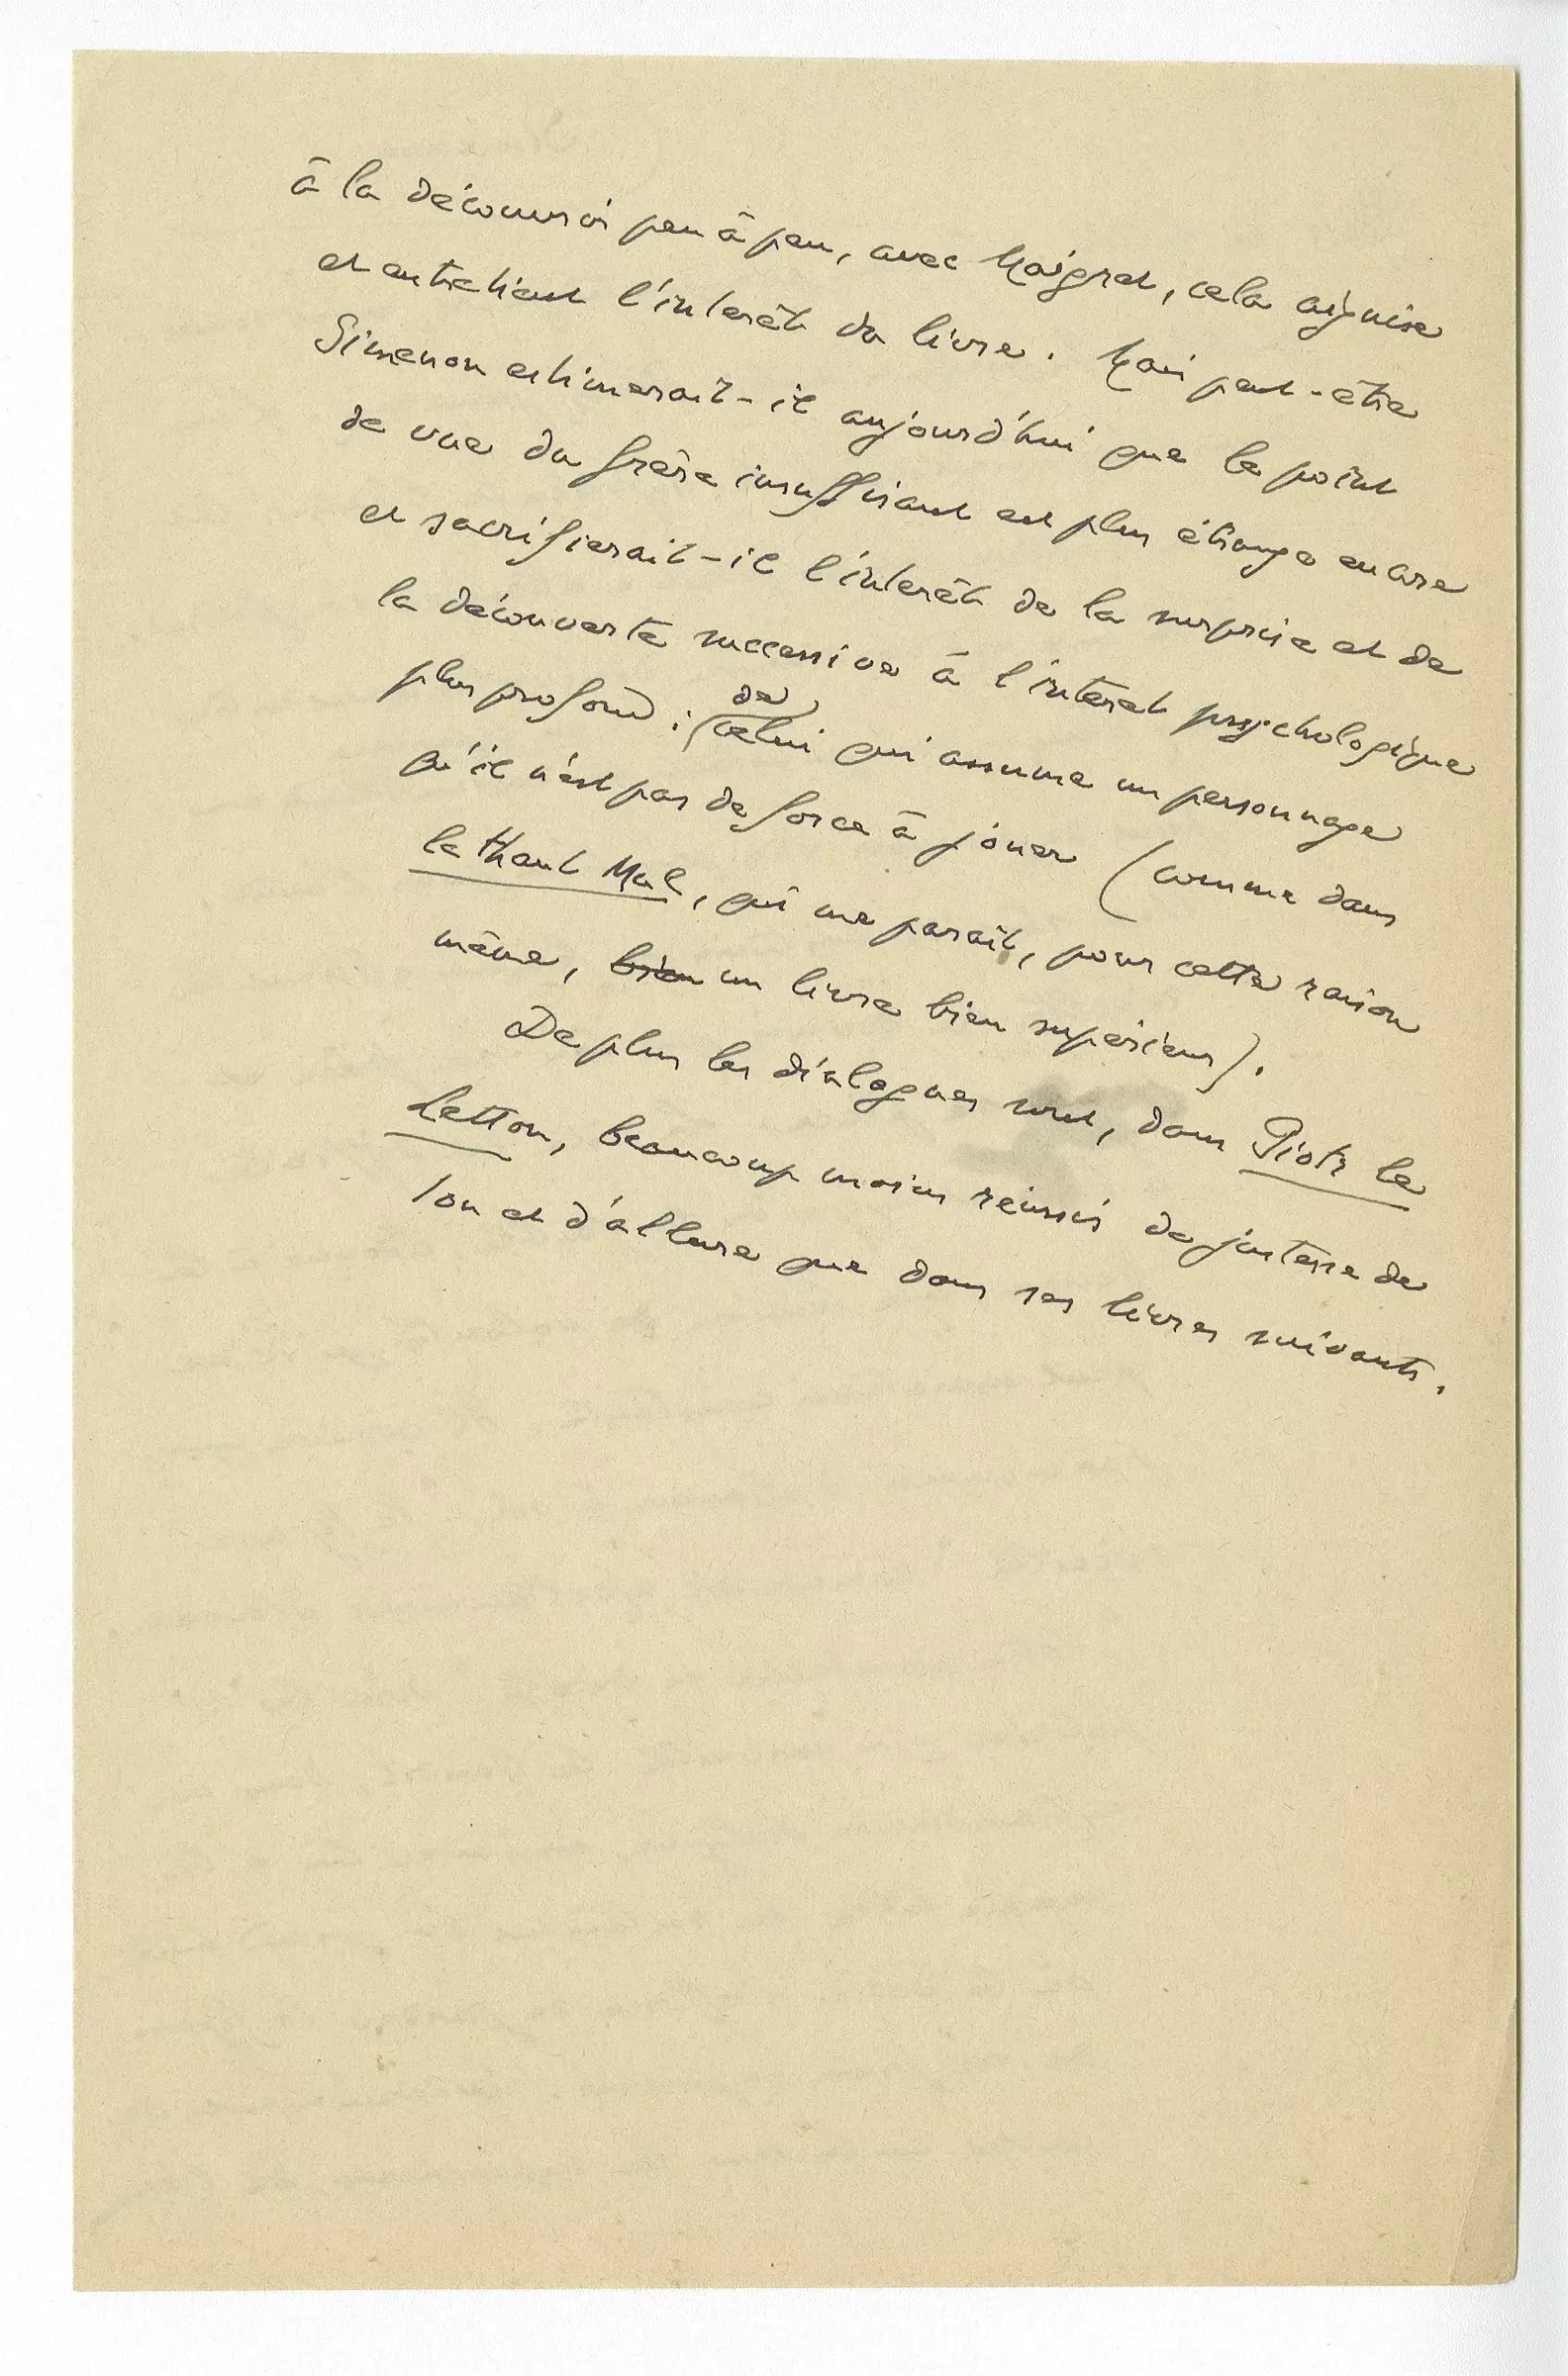 à la découvrir peu à peu, avec Maigret, cela aiguise
et entretient l'interêt du livre. Mais peut-être
Simenon estimerait-il aujourd'hui que le point
de vue du frère insuffisant est plus étrange encore
et sacrifierait-il l'interêt de la surprise et de
la découverte successive à l'interet psychologique
plus profond : de celui qui assume un personnage
qu'il n'est pas de force à jouer (comme dans
le Haut Mal, qui me parait, pour cette raison
même, bien un livre bien supérieur).
De plus les dialogues sont, dans Piotr le
Letton, beaucoup moins réussis de justesse de
ton et d'allure que dans ses livres suivants.